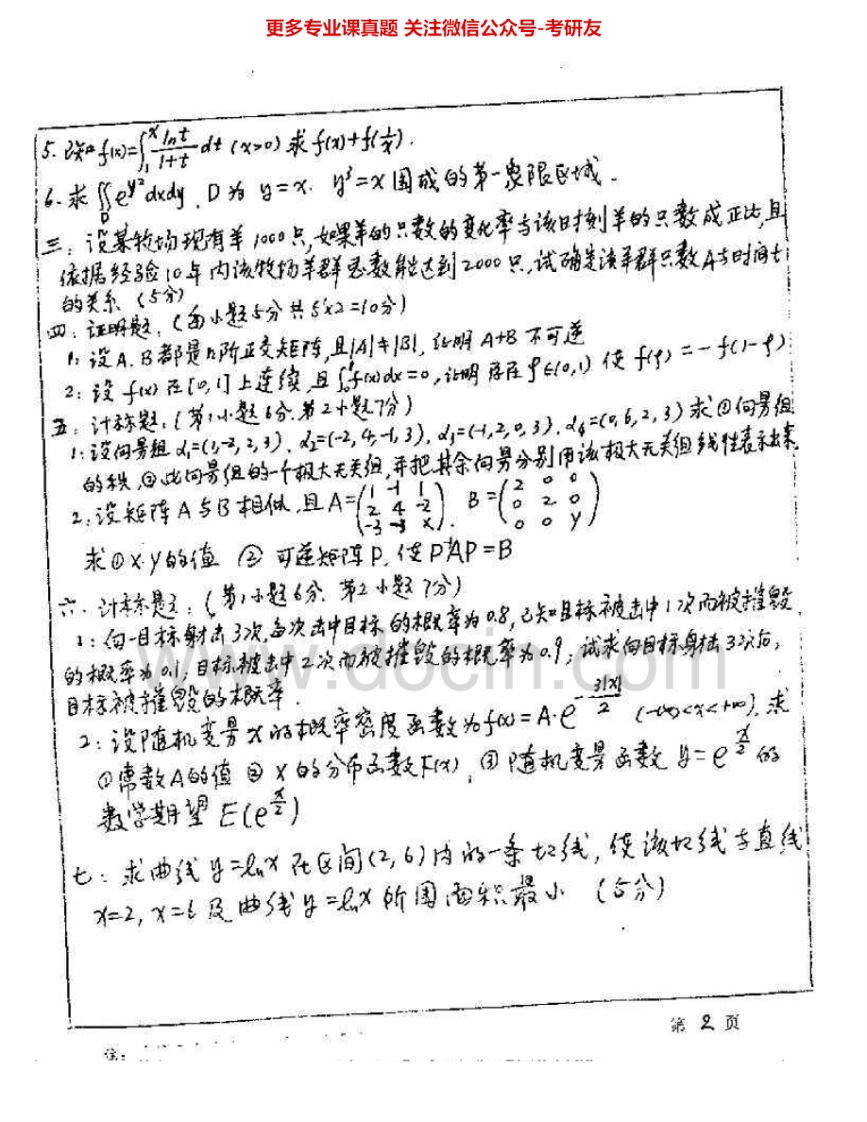 更多专业课真题 关注微信公众号-考研友
5. 已知 f(x)=∫₁ˣ lnt/(1+t) dt (x>0) 求 f(x)+f(1/x).
6. 求 ∬_D e^{y²}dxdy, D为 y=x, y³=x 围成的第一象限区域.
三: 设某牧场现有羊1000只,如果羊的只数的变化率与该时刻羊的只数成正比,且
依据经验10年内该牧场羊群总数能达到2000只,试确定该羊群只数A与时间t
的关系 (5分)
四: 证明题: (每小题5分共5×2=10分)
1: 设A.B都是n阶正交矩阵,且|A|≠|B|, 证明 A+B 不可逆
2: 设 f(x) 在[0,1]上连续,且∫₀¹f(x)dx=0, 证明存在 ρ∈(0,1) 使 f(ρ)=-f(1-ρ)
五: 计标题: (第1小题6分.第2小题7分)
1: 设向量组 α₁=(1,-2,2,3), α₂=(-2,4,-1,3), α₃=(-1,2,0,3), α₄=(0,6,2,3) 求①向量组
的秩,②此向量组的一个极大无关组,并把其余向量分别用该极大无关组线性表示出来
2: 设矩阵A与B相似,且 A=(1 -1 1; 2 4 -2; -3 -3 x). B=(2 0 0; 0 2 0; 0 0 y)
求① x.y的值 ② 可逆矩阵P, 使P⁻¹AP=B
六. 计标题: (第1小题6分. 第2小题7分)
1: 向一目标射击3次,每次击中目标的概率为0.8, 已知目标被击中1次而被摧毁
的概率为0.1, 目标被击中2次而被摧毁的概率为0.9; 试求向目标射击3次后,
目标被摧毁的概率.
2: 设随机变量X的概率密度函数为f(x)=A·e^{-3|x|/2} (-∞<x<+∞), 求
①常数A的值 ② X的分布函数F(x), ③ 随机变量函数 y=e^{x/2} 的
数学期望 E(e^{x/2})
七: 求曲线 y=lnx 在区间(2,6)内的一条切线, 使该切线与直线
x=2, x=6 及曲线 y=lnx 所围面积最小 (5分)
www.docin.com
第 2 页
注: